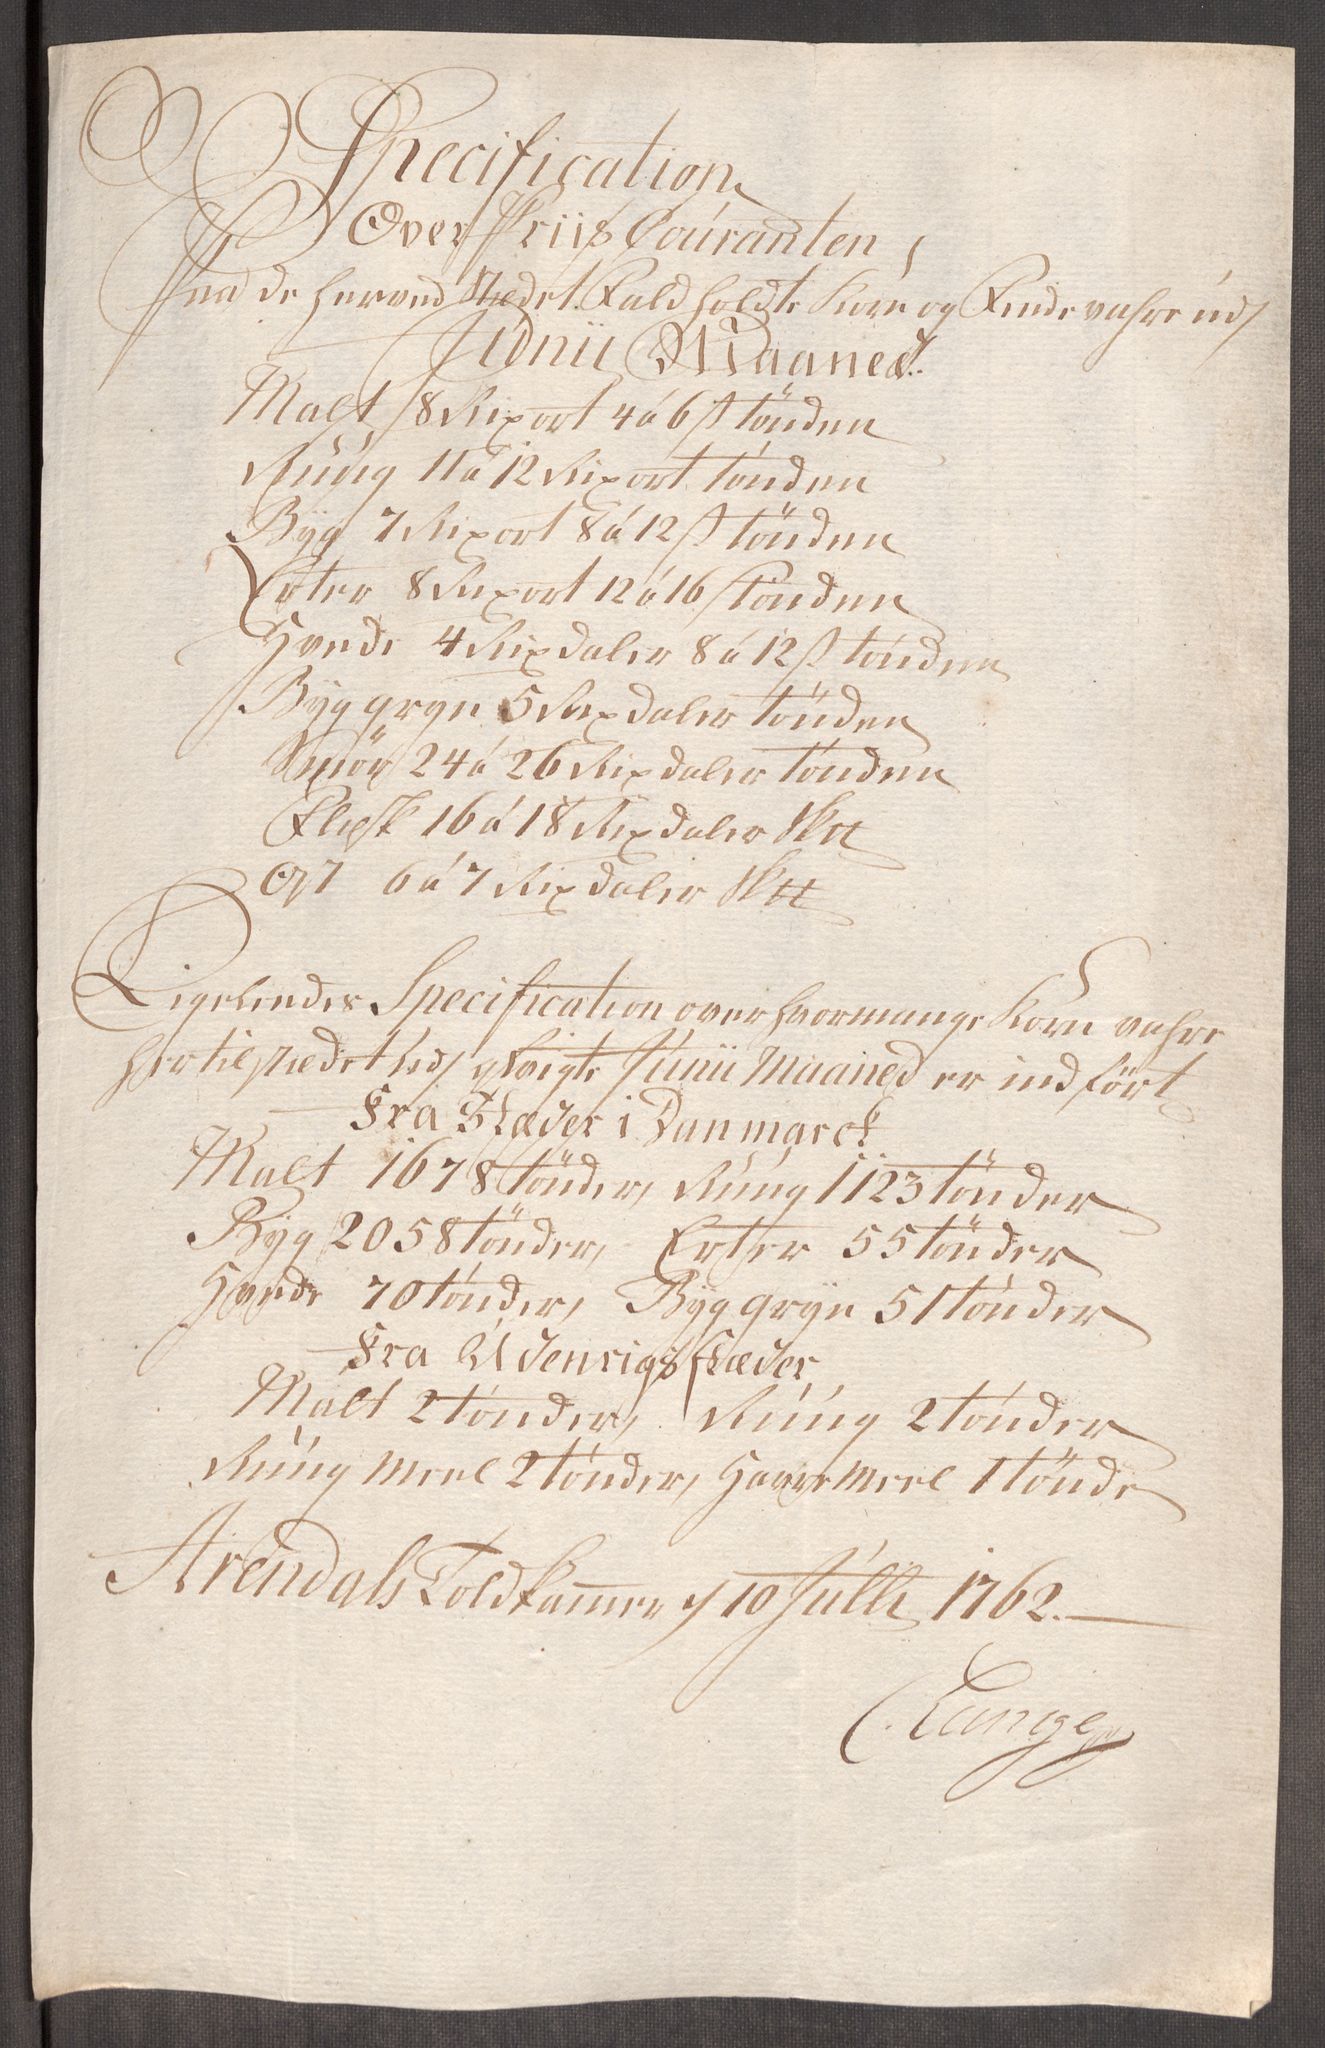 Specification
Over Priis Couranten,
Paa de herved Stædet Fald holdte Korn og Fede vahre udj
Junii Maaned.
Malt 8 Rixort 4 á 6 ß tönden
Rúúg 11 á 12 Rixort tönden
Byg 7 Rixort 8 á 12 ß tönden
Erter 8 Rixort 12 á 16 ß tönden
Hvede 4 Rixdaler 8 á 12 ß tönden
Byggryn 5 Rixdaler tönden
Smör 24 á 26 Rixdaler tönden
Flesk 16 á 18 Rixdaler Sk℔
Ost 6 á 7 Rixdaler Sk℔
Ligeledes Specification over hvormange Korn vahre
her til stædet udj Junii Maaned er indfört
Fra Stæder i Danmarck
Malt 1678 tönder, Rúúg 1123 tönder
Byg 2058 tönder, Erter 55 tönder
Hvede 70 tönder, Byggryn 51 tönder
Fra Udenrigs stæder
Malt 2 tönder, Rúúg 2 tönder
Rúúg Meel 2 tönder, Havre Meel 1 tönde
Arendals Toldkammer d 10 Julli 1762.
C. Lange